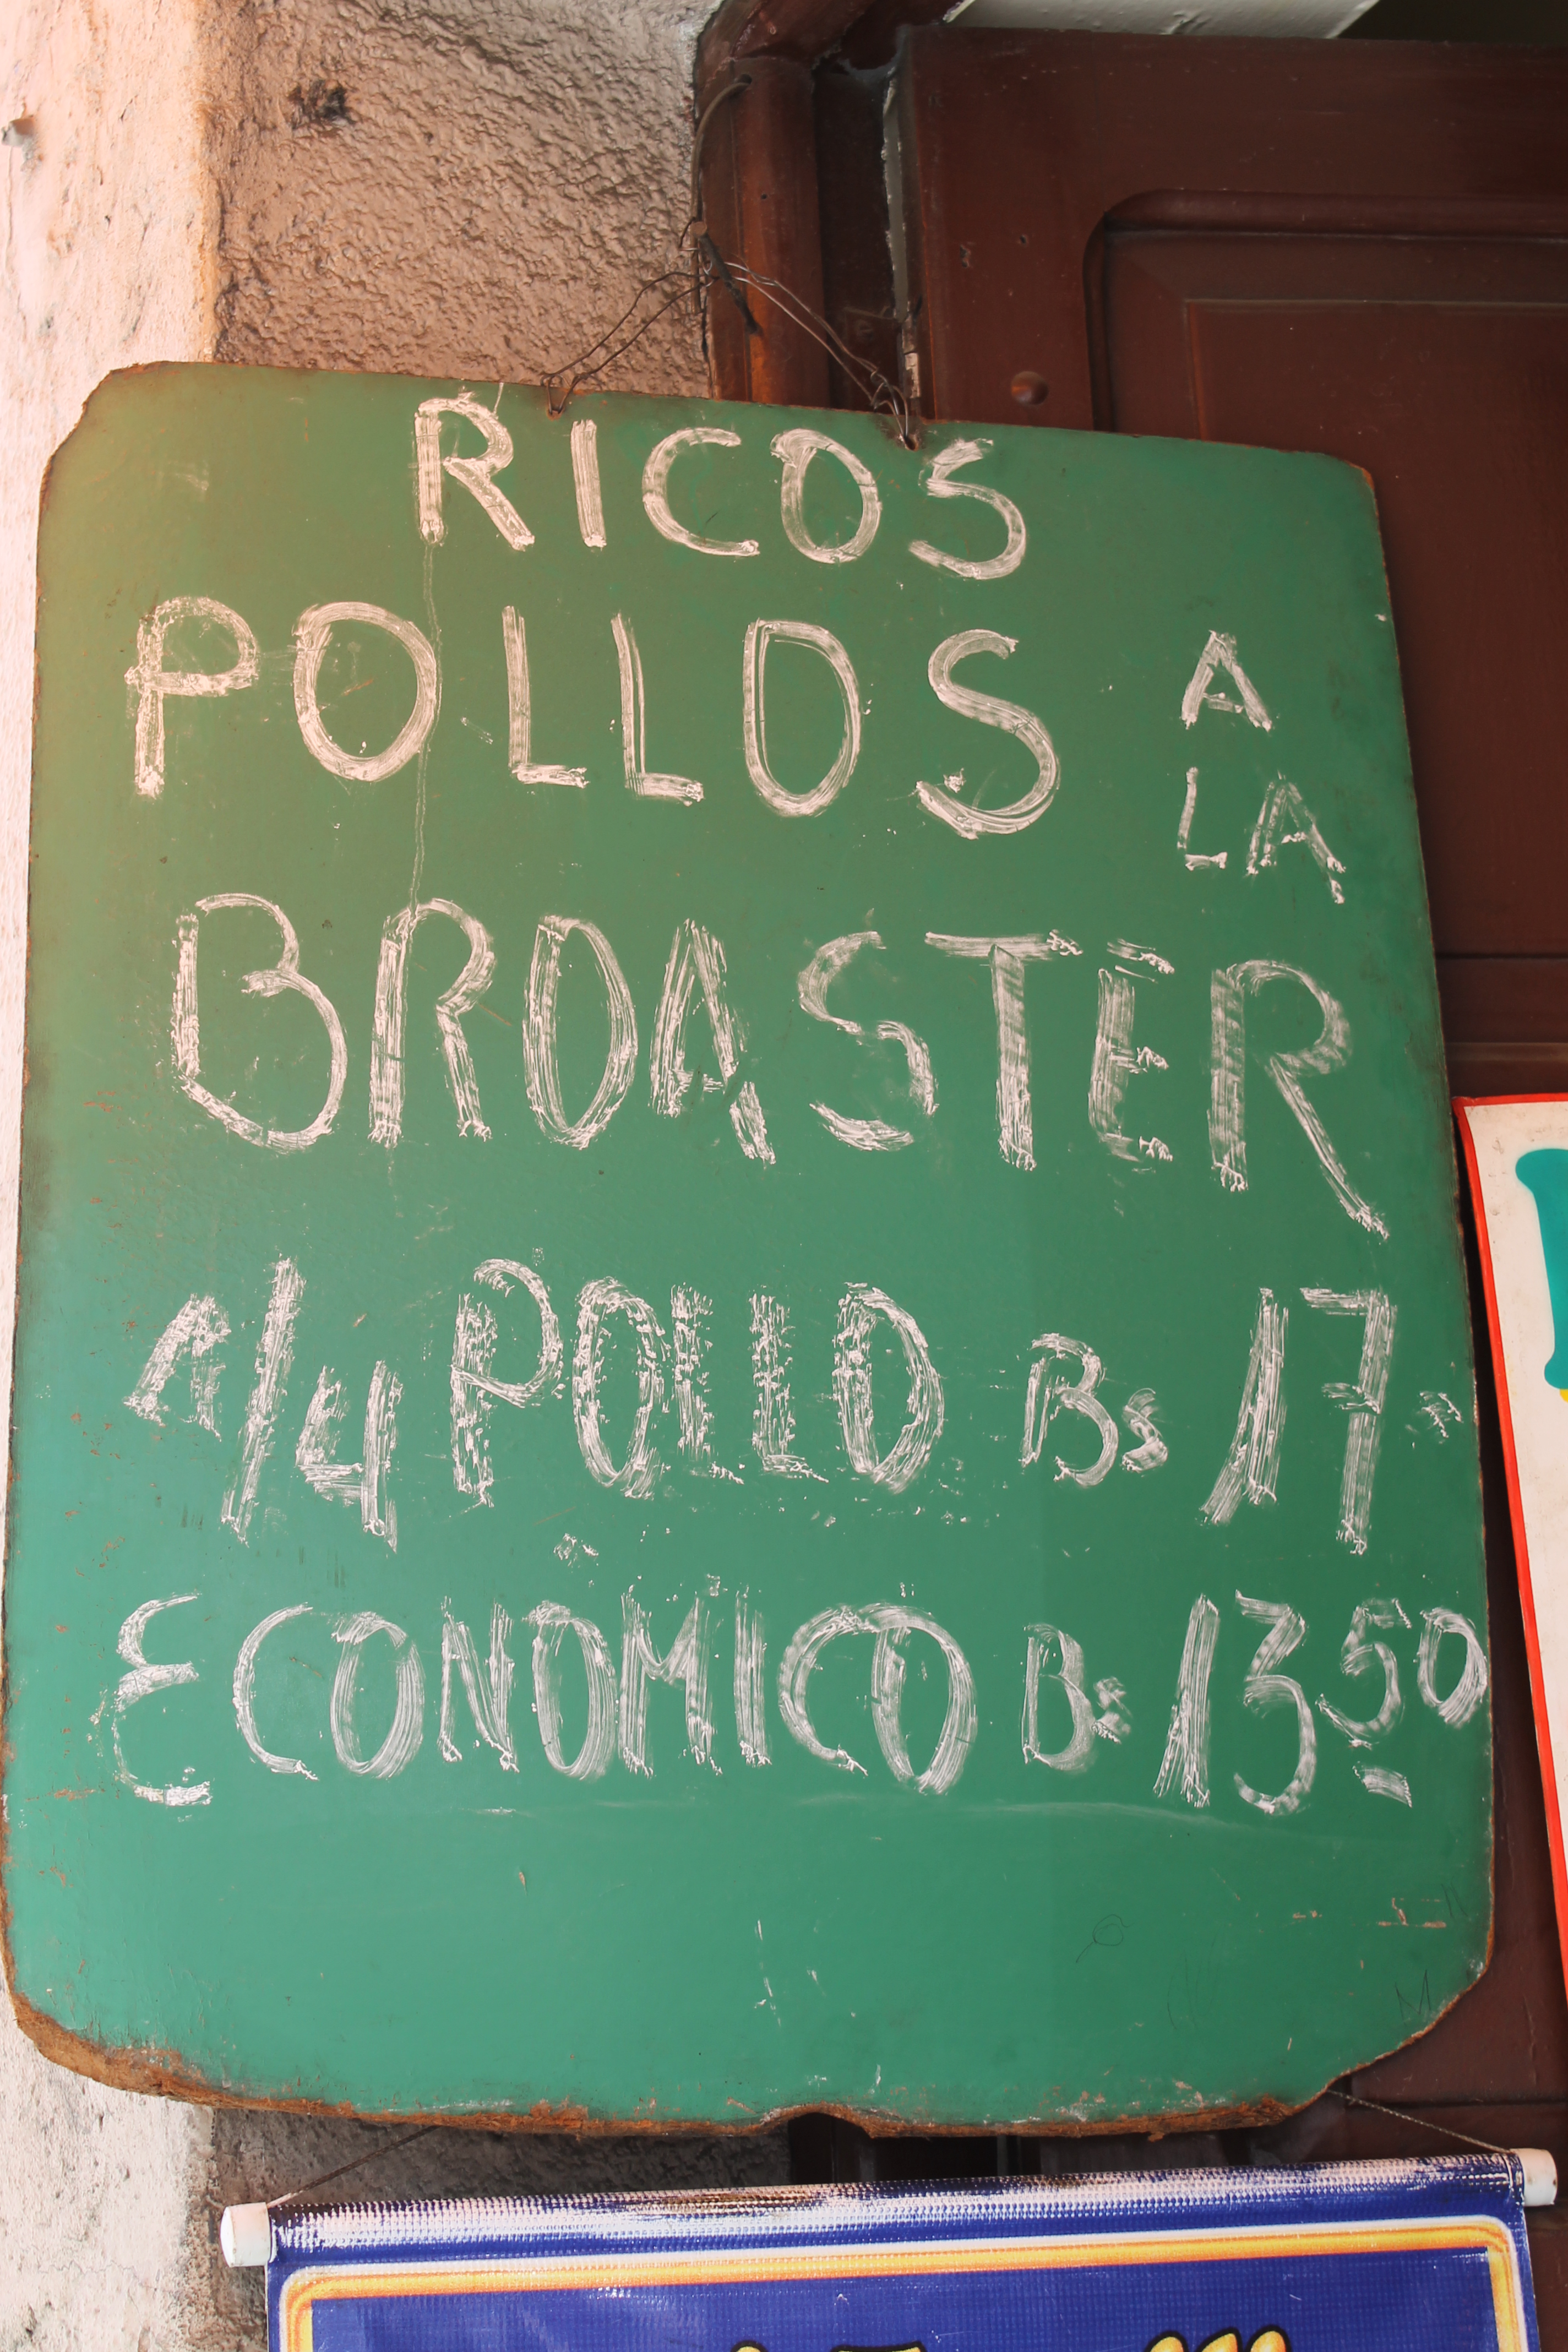 RICOS
POLLOS A
LA
BROASTER
1/4 POLLO Bs 17.-
ECONOMICO Bs 13 50